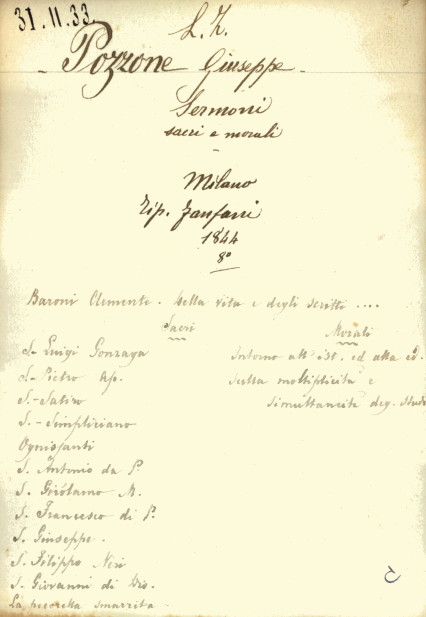 31.II.33
L. Z.
- Pozzone Giuseppe -
Sermoni
sacri e morali
-
Milano
Tip. Zanfani
1844
8°
Baroni Clemente. Della vita e degli scritti ....
Sacri
S. Luigi Gonzaga
S. Pietro Ap.
S. Satiro
S. Simpliciano
Ognissanti
S. Antonio da P.
S. Girolamo M.
S. Francesco di P.
S. Giuseppe.
S. Filippo Neri
S. Giovanni di Dio.
La pecorella smarrita
Morali
Intorno all'ist. ed alla ed.
Sulla moltiplicità e
simultaneità deg. studi